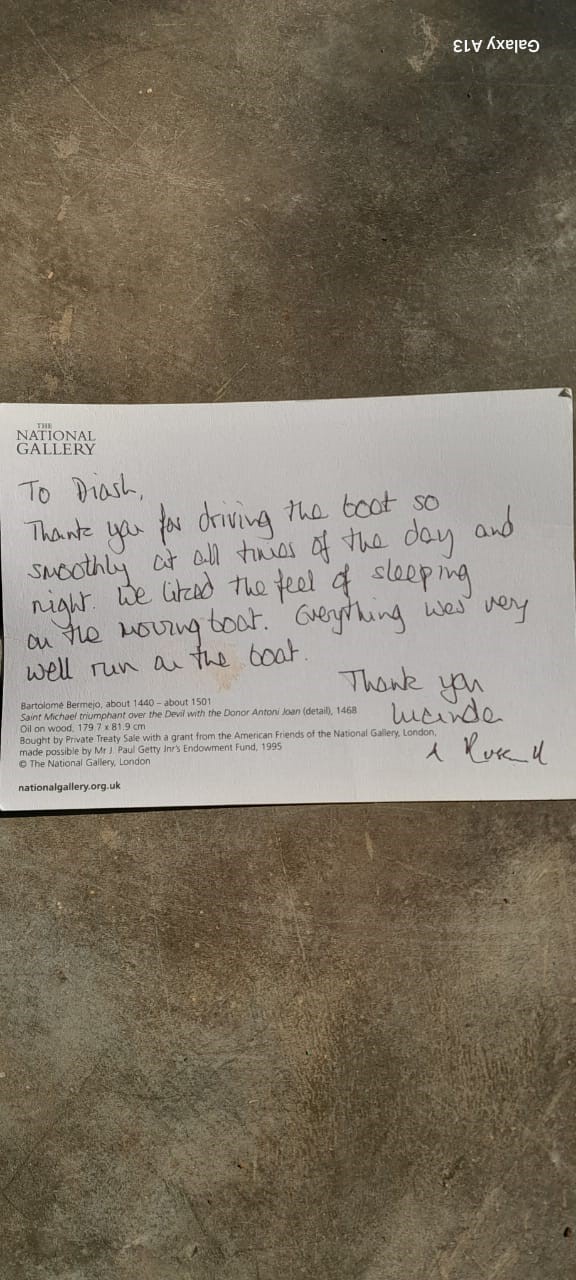 Galaxy A13
THE
NATIONAL
GALLERY
To Diash,
Thank you for driving the boat so
smoothly at all times of the day and
night. We liked the feel of sleeping
on the moving boat. Everything was very
well run on the boat.
Thank you
Lucinda
& Russell
Bartolomé Bermejo, about 1440 – about 1501
Saint Michael triumphant over the Devil with the Donor Antoni Joan (detail), 1468
Oil on wood, 179.7 x 81.9 cm
Bought by Private Treaty Sale with a grant from the American Friends of the National Gallery, London,
made possible by Mr J. Paul Getty Jnr's Endowment Fund, 1995
© The National Gallery, London
nationalgallery.org.uk